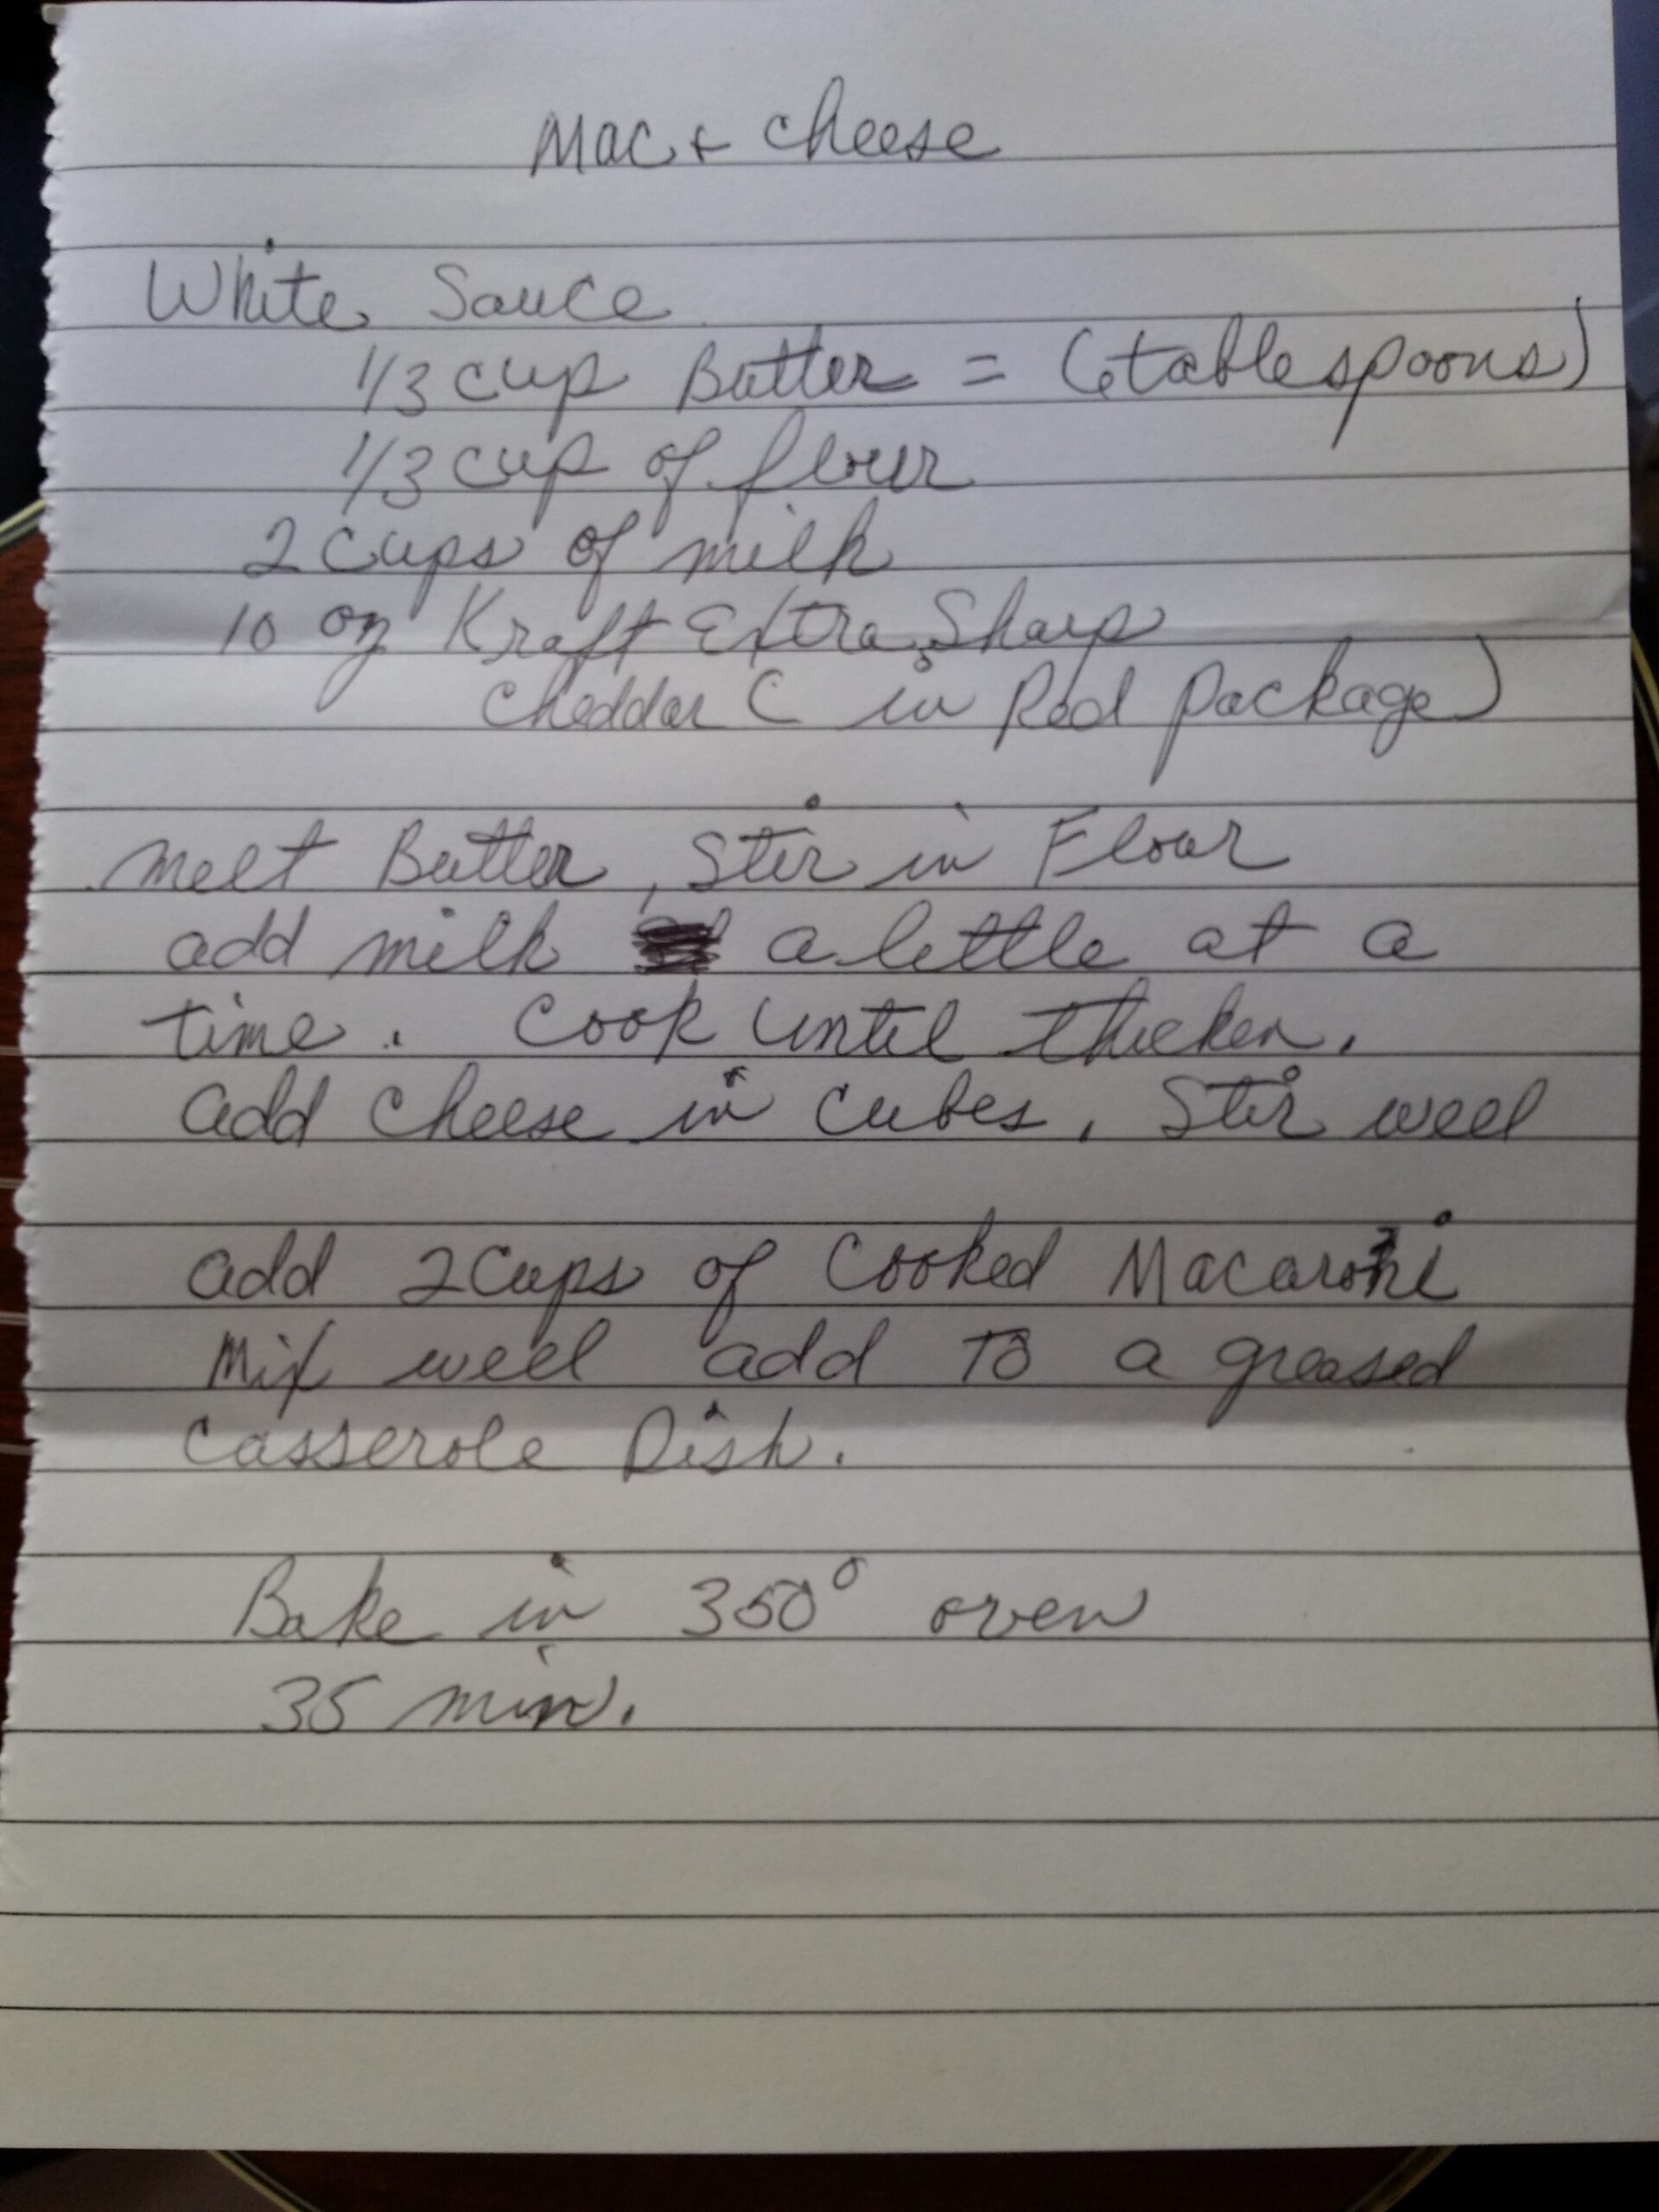 Mac + cheese
White Sauce
1/3 cup Butter = (6 tablespoons)
1/3 cup of flour
2 cups of milk
10 oz Kraft Extra Sharp
cheddar ( in Red package)
melt Butter, Stir in Flour
add milk a little at a
time. Cook until thicken.
add cheese in cubes. Stir well
add 2 cups of Cooked Macaroni
Mix well add To a greased
Casserole Dish.
Bake in 350° oven
35 min.